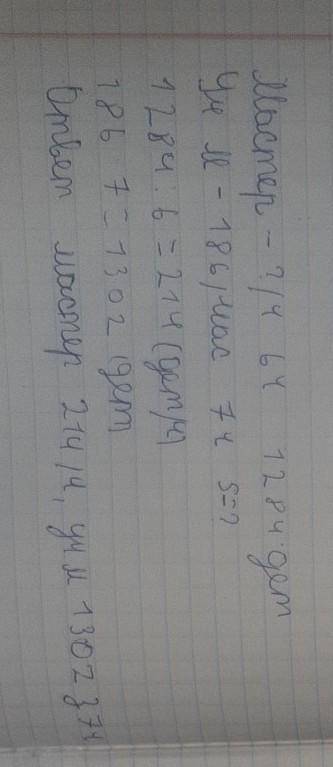 Мастер - ?/ч 6ч 1284 дет
Уч к - 186/час 7ч S=?
1284 : 6 = 214 (дет/ч)
186 7 = 1302 (дет
Ответ мастер 214/ч, уч к 1302 } 7ч